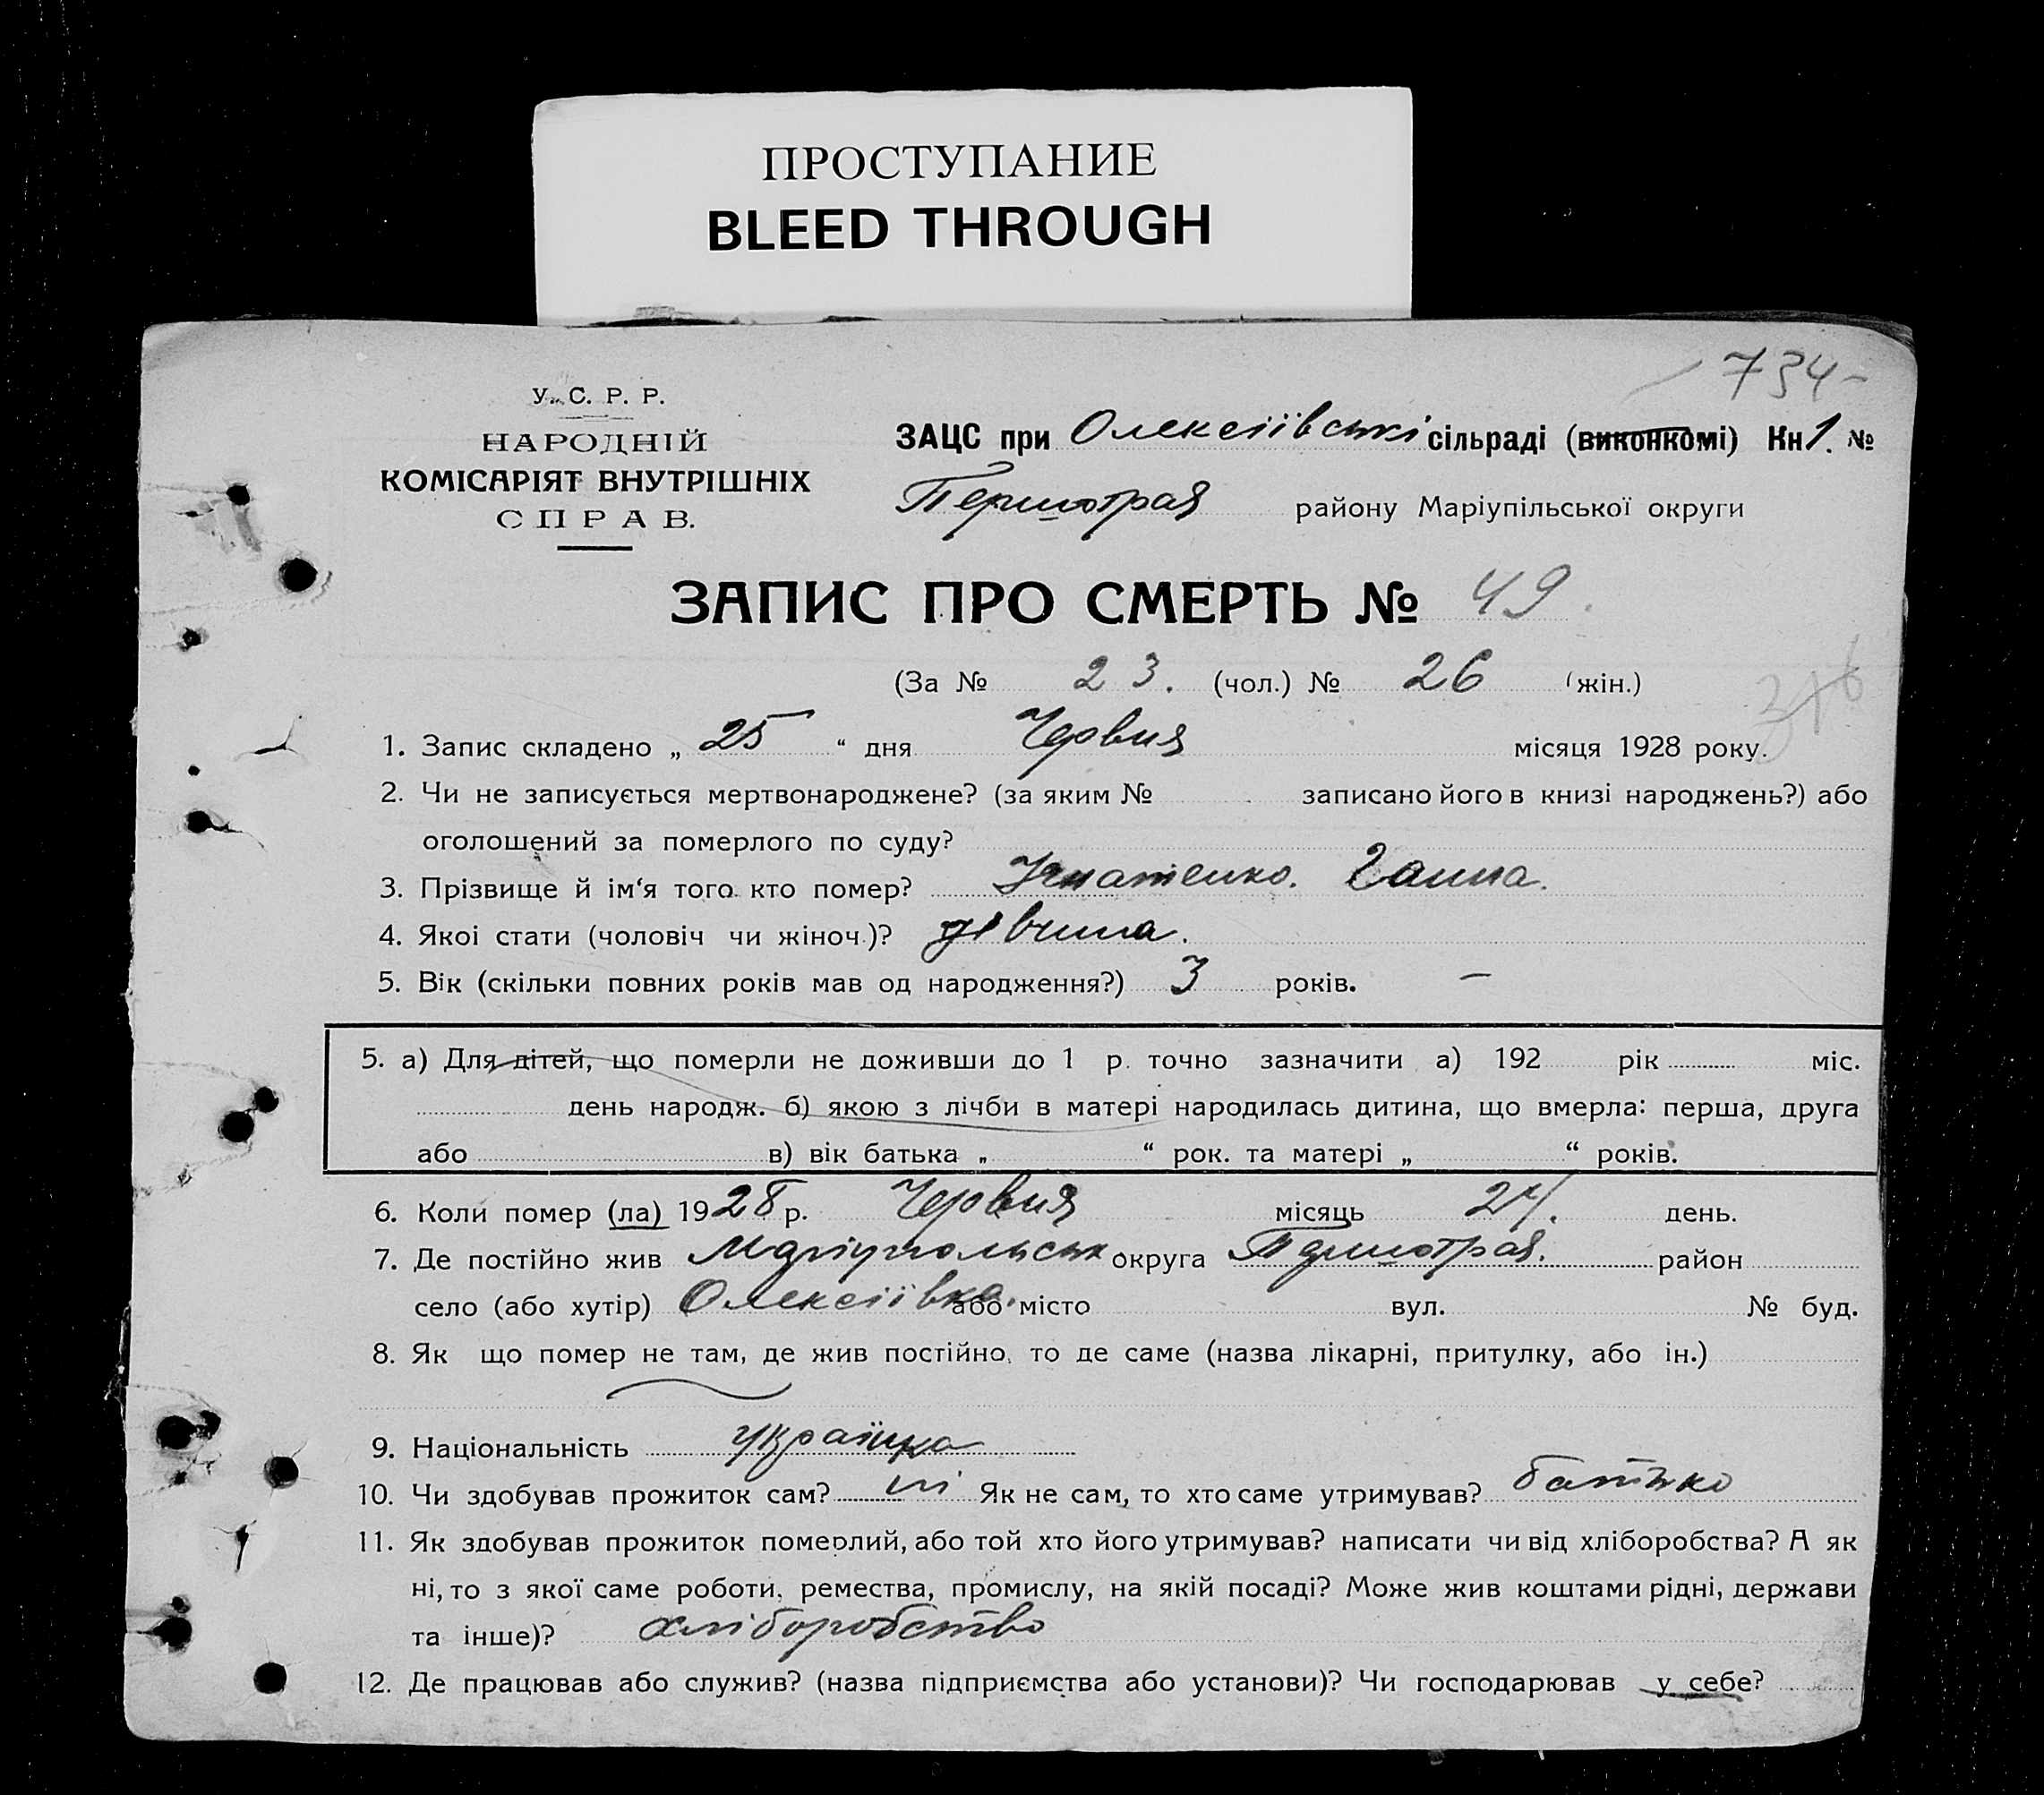 ПРОСТУПАНИЕ
BLEED THROUGH
734-
У. С. Р. Р.
НАРОДНІЙ
КОМІСАРІЯТ ВНУТРІШНІХ
СПРАВ.
ЗАЦС при Олексіївські сільраді (виконкомі) Кн 1. №
Першотрав району Маріупільської округи
ЗАПИС ПРО СМЕРТЬ № 49.
(За № 23. (чол.) № 26 (жін.)
1. Запис складено „ 25 “ дня Червня місяця 1928 року.
2. Чи не записується мертвонароджене? (за яким № записано його в книзі народжень?) або
оголошений за померлого по суду?
3. Прізвище й ім‘я того кто помер? Ігнатенко. Ганна.
4. Якої стати (чоловіч чи жіноч.)? дівчина.
5. Вік (скільки повних років мав од народження?) 3 років. –
5. а) Для дітей, що померли не доживши до 1 р. точно зазначити а) 192 рік міс.
день народж. б) якою з лічби в матері народилась дитина, що вмерла: перша, друга
або в) вік батька „ “ рок. та матері „ “ років.
6. Коли помер (ла) 1928 р. Червня місяць 24. день.
7. Де постійно жив Маріупольськ округа Першотрав. район
село (або хутір) Олексіївка. або місто вул. № буд.
8. Як що помер не там, де жив постійно, то де саме (назва лікарні, притулку, або ін.)
9. Національність українка
10. Чи здобував прожиток сам? ні Як не сам, то хто саме утримував? батько
11. Як здобував прожиток померлий, або той хто його утримував? написати чи від хліборобства? А як
ні, то з якої саме роботи, ремества, промислу, на якій посаді? Може жив коштами рідні, держави
та інше)? хліборобство
12. Де працював або служив? (назва підприємства або установи)? Чи господарював у себе?